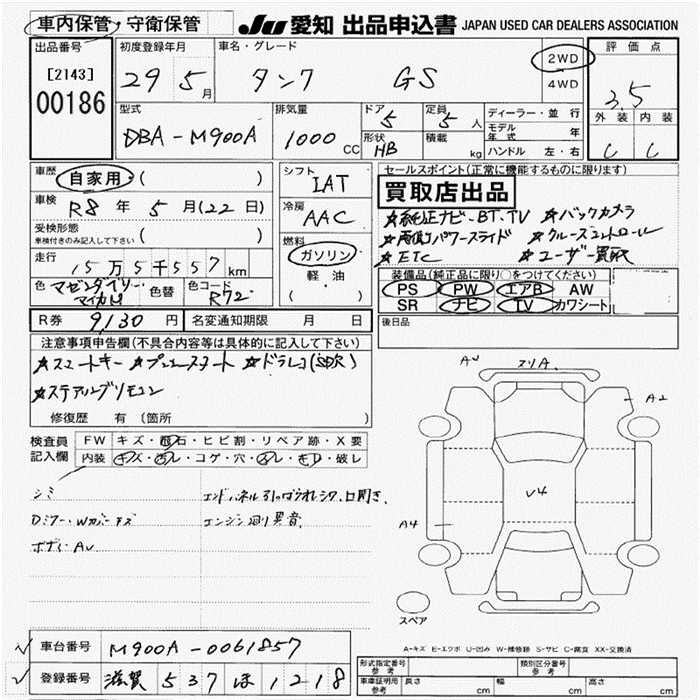 車内保管・守衛保管
JU 愛知 出品申込書 JAPAN USED CAR DEALERS ASSOCIATION
出品番号 [2143] 00186
初度登録年月 29 5月
車名・グレード タンク GS
2WD
4WD
評価点 3.5
外装 内装
C C
型式 DBA-M900A
排気量 1000 CC
ドア 5
形状 HB
定員 5人
積載 kg
ディーラー・並行
モデル年式 年
ハンドル 左・右
車歴 自家用 ( )
車検 R8年 5月(22日)
受検形態 車検付きのみ記入して下さい ( )
走行 15万5千557km
色 マゼンタベリーマイカM 色替 色コード R72
シフト IAT
冷房 AAC
燃料 ガソリン
軽・油
( )
セールスポイント(正常に機能するものに限ります)
買取店出品
★純正ナビ・BT.TV ★バックカメラ
★両側パワースライド ★クルーズコントロール
★ETC ★ユーザー買取
装備品(純正品に限り○をつけてください)
PS PW エアB AW
SR ナビ TV カワシート
後日品
R券 9130円 名変通知期限 月 日
注意事項申告欄(不具合内容等は具体的に記入して下さい)
★スマートキー ★プッシュスタート ★ドラレコ(SDR)
★ステアリングリモコン
修復歴 有 (箇所
検査員記入欄
FW キズ・飛石・ヒビ割・リペア跡・X要
内装 キズ・汚レ・コゲ・穴・スレ・モケ・破レ
シミ
Dミラー・Wカバーキズ
ボディ・AU
エンジン廻り異音
AU スリA
A2
U4
A4
スペア
A-キズ E-エクボ U-凹み W-補修跡 S-サビ C-腐食 XX-交換済
車台番号 M900A-0061857
登録番号 滋賀 537 ほ 1218
形式指定番号 参考 類別区分番号 参考
車庫証明用 参考 長さ cm 幅 cm 高さ cm